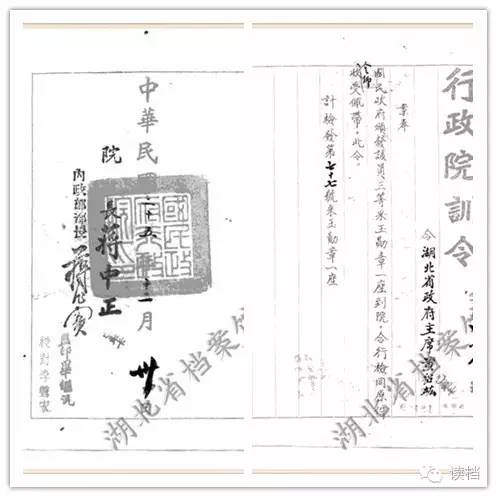 行政院訓令
令湖北省政府主席黃紹竑
業奉
國民政府頒發該員三等采玉勳章一座到院,合行檢同原
令仰
受佩帶。此令。
計檢發第七十七號采玉勳章一座
中華民 二十五年十二月卅日
院長蔣中正
內政部部長蔣作賓
監印畢
校對李
湖北省档案馆
湖北省档案
读档